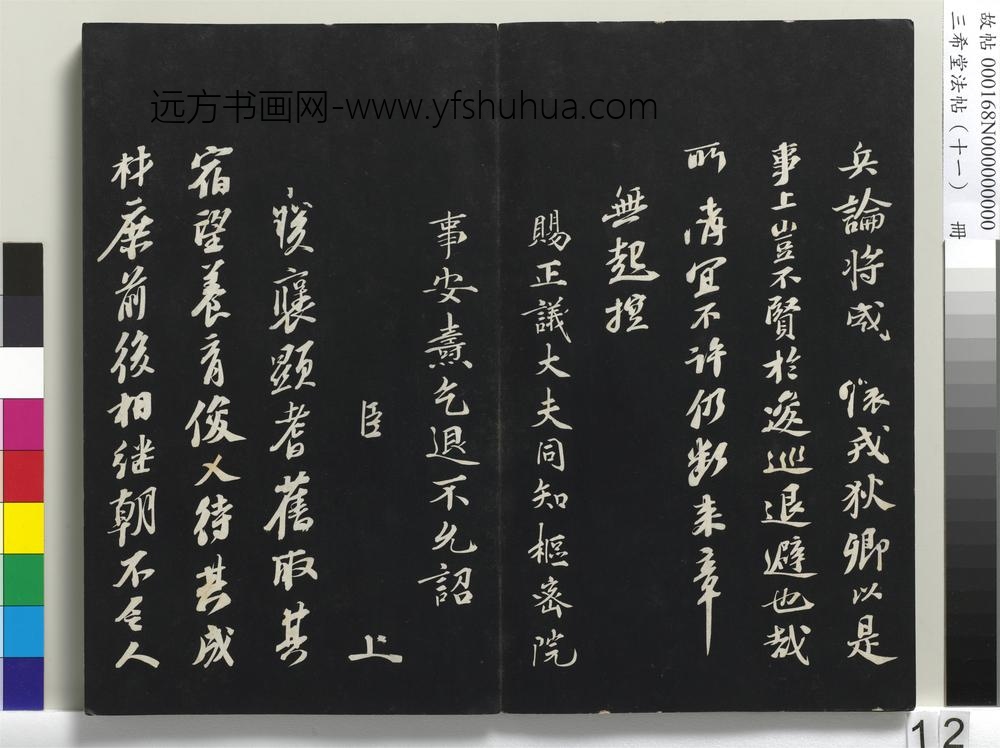 兵論將成 懷戎狄卿以是
事上豈不賢於逡巡退避也哉
所請宜不許仍斷来章
無起
賜正議大夫同知樞密院
事安燾乞退不允詔
臣 上
襃顯耆舊取其
宿望養育俊乂待其成
材庶前後相继朝不乏人
远方书画网-www.yfshuhua.com
故帖 000168N000000000
三希堂法帖（十一） 冊
12